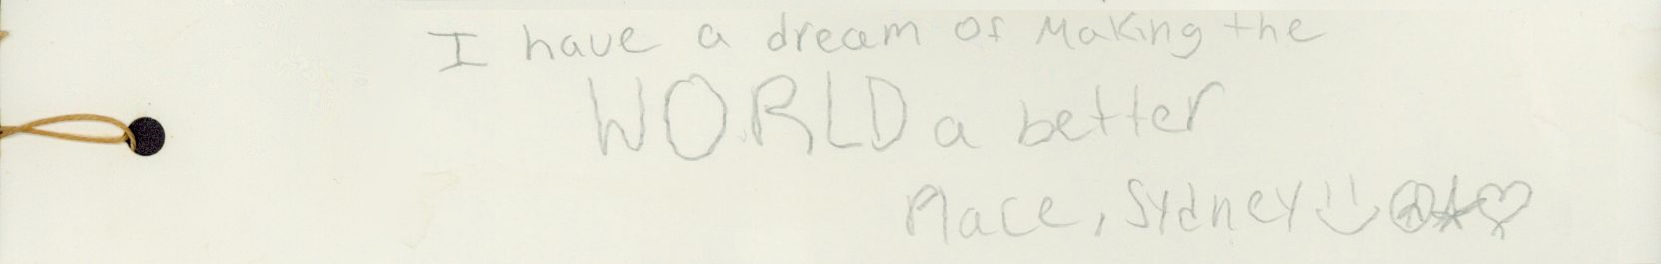 I have a dream of Making the
WORLD a better
Place, Sydney